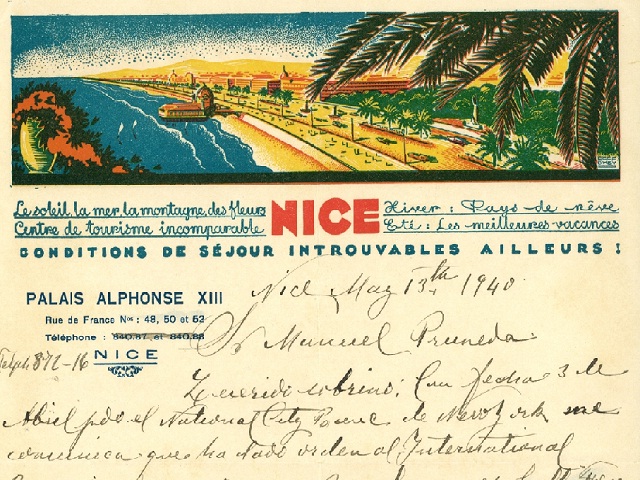 Le soleil, la mer, la montagne, des fleurs
Centre de tourisme incomparable
NICE
Hiver : Pays de rêve
Eté : Les meilleures vacances
CONDITIONS DE SÉJOUR INTROUVABLES AILLEURS !
Nice May 13th 1940
PALAIS ALPHONSE XIII
Rue de France Nos : 48, 50 et 52
Téléphone : 840.87. et 840.88
Teleph. 872-16
NICE
Sr Manuel Pruneda
Querido sobrino; Con fecha 3 de
Abril ppdo el National City Banc de New York me
comunica que ha dado orden al International